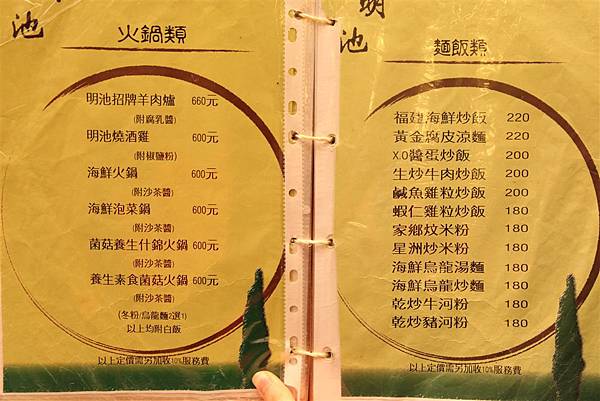 池
火鍋類
明池招牌羊肉爐 660元
(附腐乳醬)
明池燒酒雞 600元
(附椒鹽粉)
海鮮火鍋 600元
(附沙茶醬)
海鮮泡菜鍋 600元
(附沙茶醬)
菌菇養生什錦火鍋 600元
(附沙茶醬)
養生素食菌菇火鍋 600元
(附沙茶醬)
(冬粉/烏龍麵2選1)
以上均附白飯
以上定價需另加收10%服務費
明池
麵飯類
福建海鮮炒飯 220
黃金腐皮涼麵 220
X.O醬蛋炒飯 200
生炒牛肉炒飯 200
鹹魚雞粒炒飯 200
蝦仁雞粒炒飯 180
家鄉炆米粉 180
星洲炒米粉 180
海鮮烏龍湯麵 180
海鮮烏龍炒麵 180
乾炒牛河粉 180
乾炒豬河粉 180
以上定價需另加收10%服務費